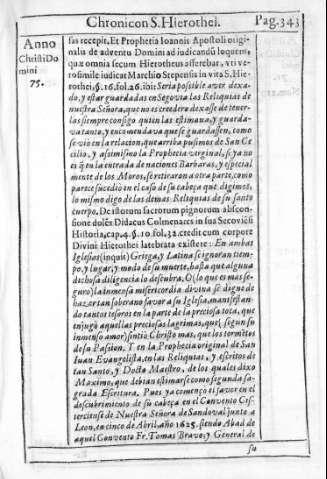 Chronicon S. Hierothei. Pag. 343
Anno
Christi Do
mini
75.
sas recepit, Et Prophetia Ioannis Apostoli origi-
nalis de adventu Domini ad iudicandũ loquens,
quæ omnia secum Hierotheus afferebat, vti ve-
rosimile iudicat Marchio Stepensis in vita S. Hie-
rothei, §. 16. fol. 26. ibi: Seria possible aver dexa-
do, y estar guardadas en Segovia las Reliquias de
nuestra Señora, que no es creedero dexasse de tener-
las siempre consigo quien las estimava, y guarda-
va tanto, y encomendava que se guardassen, como
se vio en la relacion, que arriba pusimos de San Ce
cilio, y assimismo la Prophecia original, si ya no
es q̃ en la entrada de naciones Barbaras, y especial
mente de los Moros, se retiraron a otra parte, como
parece sucediò en el caso de su cabeça que digimos,
lo mismo digo de las demas Reliquias de su santo
cuerpo. De istorum sacrorum pignorum abscon-
sione dolẽs Didacus Colmenares in sua Secoviẽsi
Historia, cap. 4. §. 10. fol. 32. credit cum corpore
Divini Hierothei latebrata existere: En ambas
Iglesias (inquit) Griega, y Latina se ignoran tiem-
po, y lugar, y modo de su muerte, hasta que alguna
dichosa diligencia lo descubra. O (lo que es mas se-
guro) la inmensa misericordia divina se digne de
hazer tan soberano favor a su Iglesia, manifestan-
do tantos tesoros en la parte de la preciosa toca, que
enjugò aquellas preciosas lagrimas, que (segun su
inmenso amor) sintiò Christo mas, que los tormẽtos
de su Passion. Y en la Prophecia original de San
Iuan Evangelista, en las Reliquias, y escritos de
tan Santo, y Docto Maestro, de los quales dixo
Maximo, que debian estimarse como segunda sa-
grada Escritura. Pues ya començò el favor en el
descubrimiento de su cabeça en el Convento Cis-
terciense de Nuestra Señora de Sandoval junto a
Leon, en cinco de Abril, año 1625. siendo Abad de
aquel Convento Fr. Tomas Bravo, y General de
su